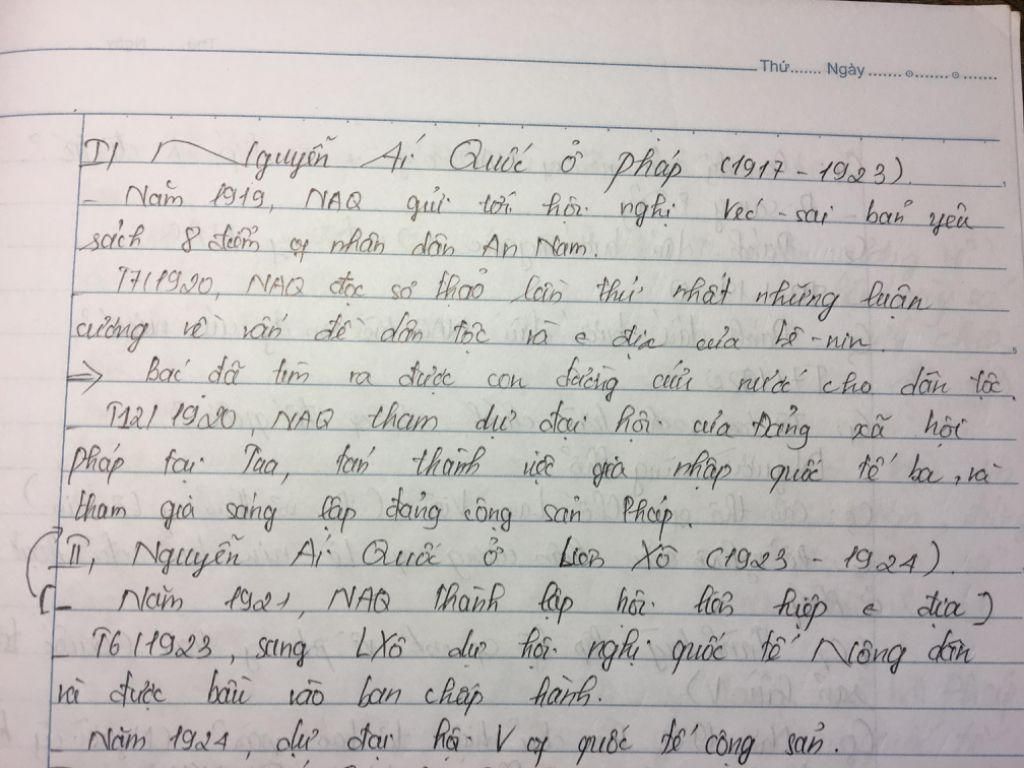 Thứ....... Ngày ....... o ....... o .......
I) Nguyễn Ái Quốc ở Pháp (1917 - 1923).
- Năm 1919, NAQ gửi tới hội nghị Véc-sai bản yêu
sách 8 điểm of nhân dân An Nam.
- T7/1920, NAQ đọc sơ thảo lần thứ nhất những luận
cương về vấn đề dân tộc và e địa của Lê-nin.
=> Bác đã tìm ra được con đường cứu nước cho dân tộc.
- T12/1920, NAQ tham dự đại hội của Đảng xã hội
Pháp tại Tua, tán thành việc gia nhập quốc tế ba, và
tham gia sáng lập đảng cộng sản Pháp.
II, Nguyễn Ái Quốc ở Liên Xô (1923 - 1924).
[- Năm 1921, NAQ thành lập hội liên hiệp e địa]
- T6/1923, sang LXô dự hội nghị quốc tế Nông dân
và được bầu vào ban chấp hành.
- Năm 1924, dự đại hội V of quốc tế cộng sản.